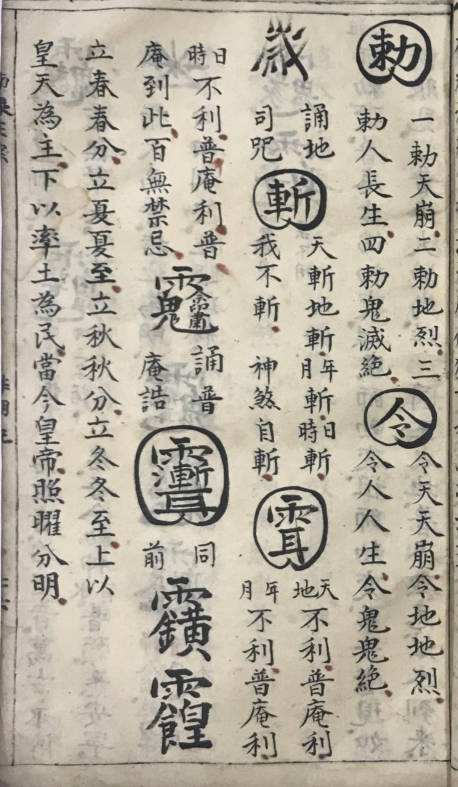 勅
一勅天崩二勅地烈三
勅人長生四勅鬼滅絕
令
令天天崩令地地烈
令人人生令鬼鬼絕
誦地
司咒
斬
天斬地斬年月斬日時斬
我不斬神煞自斬
天地不利普庵利
年月不利普庵利
日時不利普庵利普
庵到此百無禁忌
誦普
庵誥
同
前
立春春分立夏夏至立秋秋分立冬冬至上以
皇天為主下以率土為民當今皇帝照曜分明